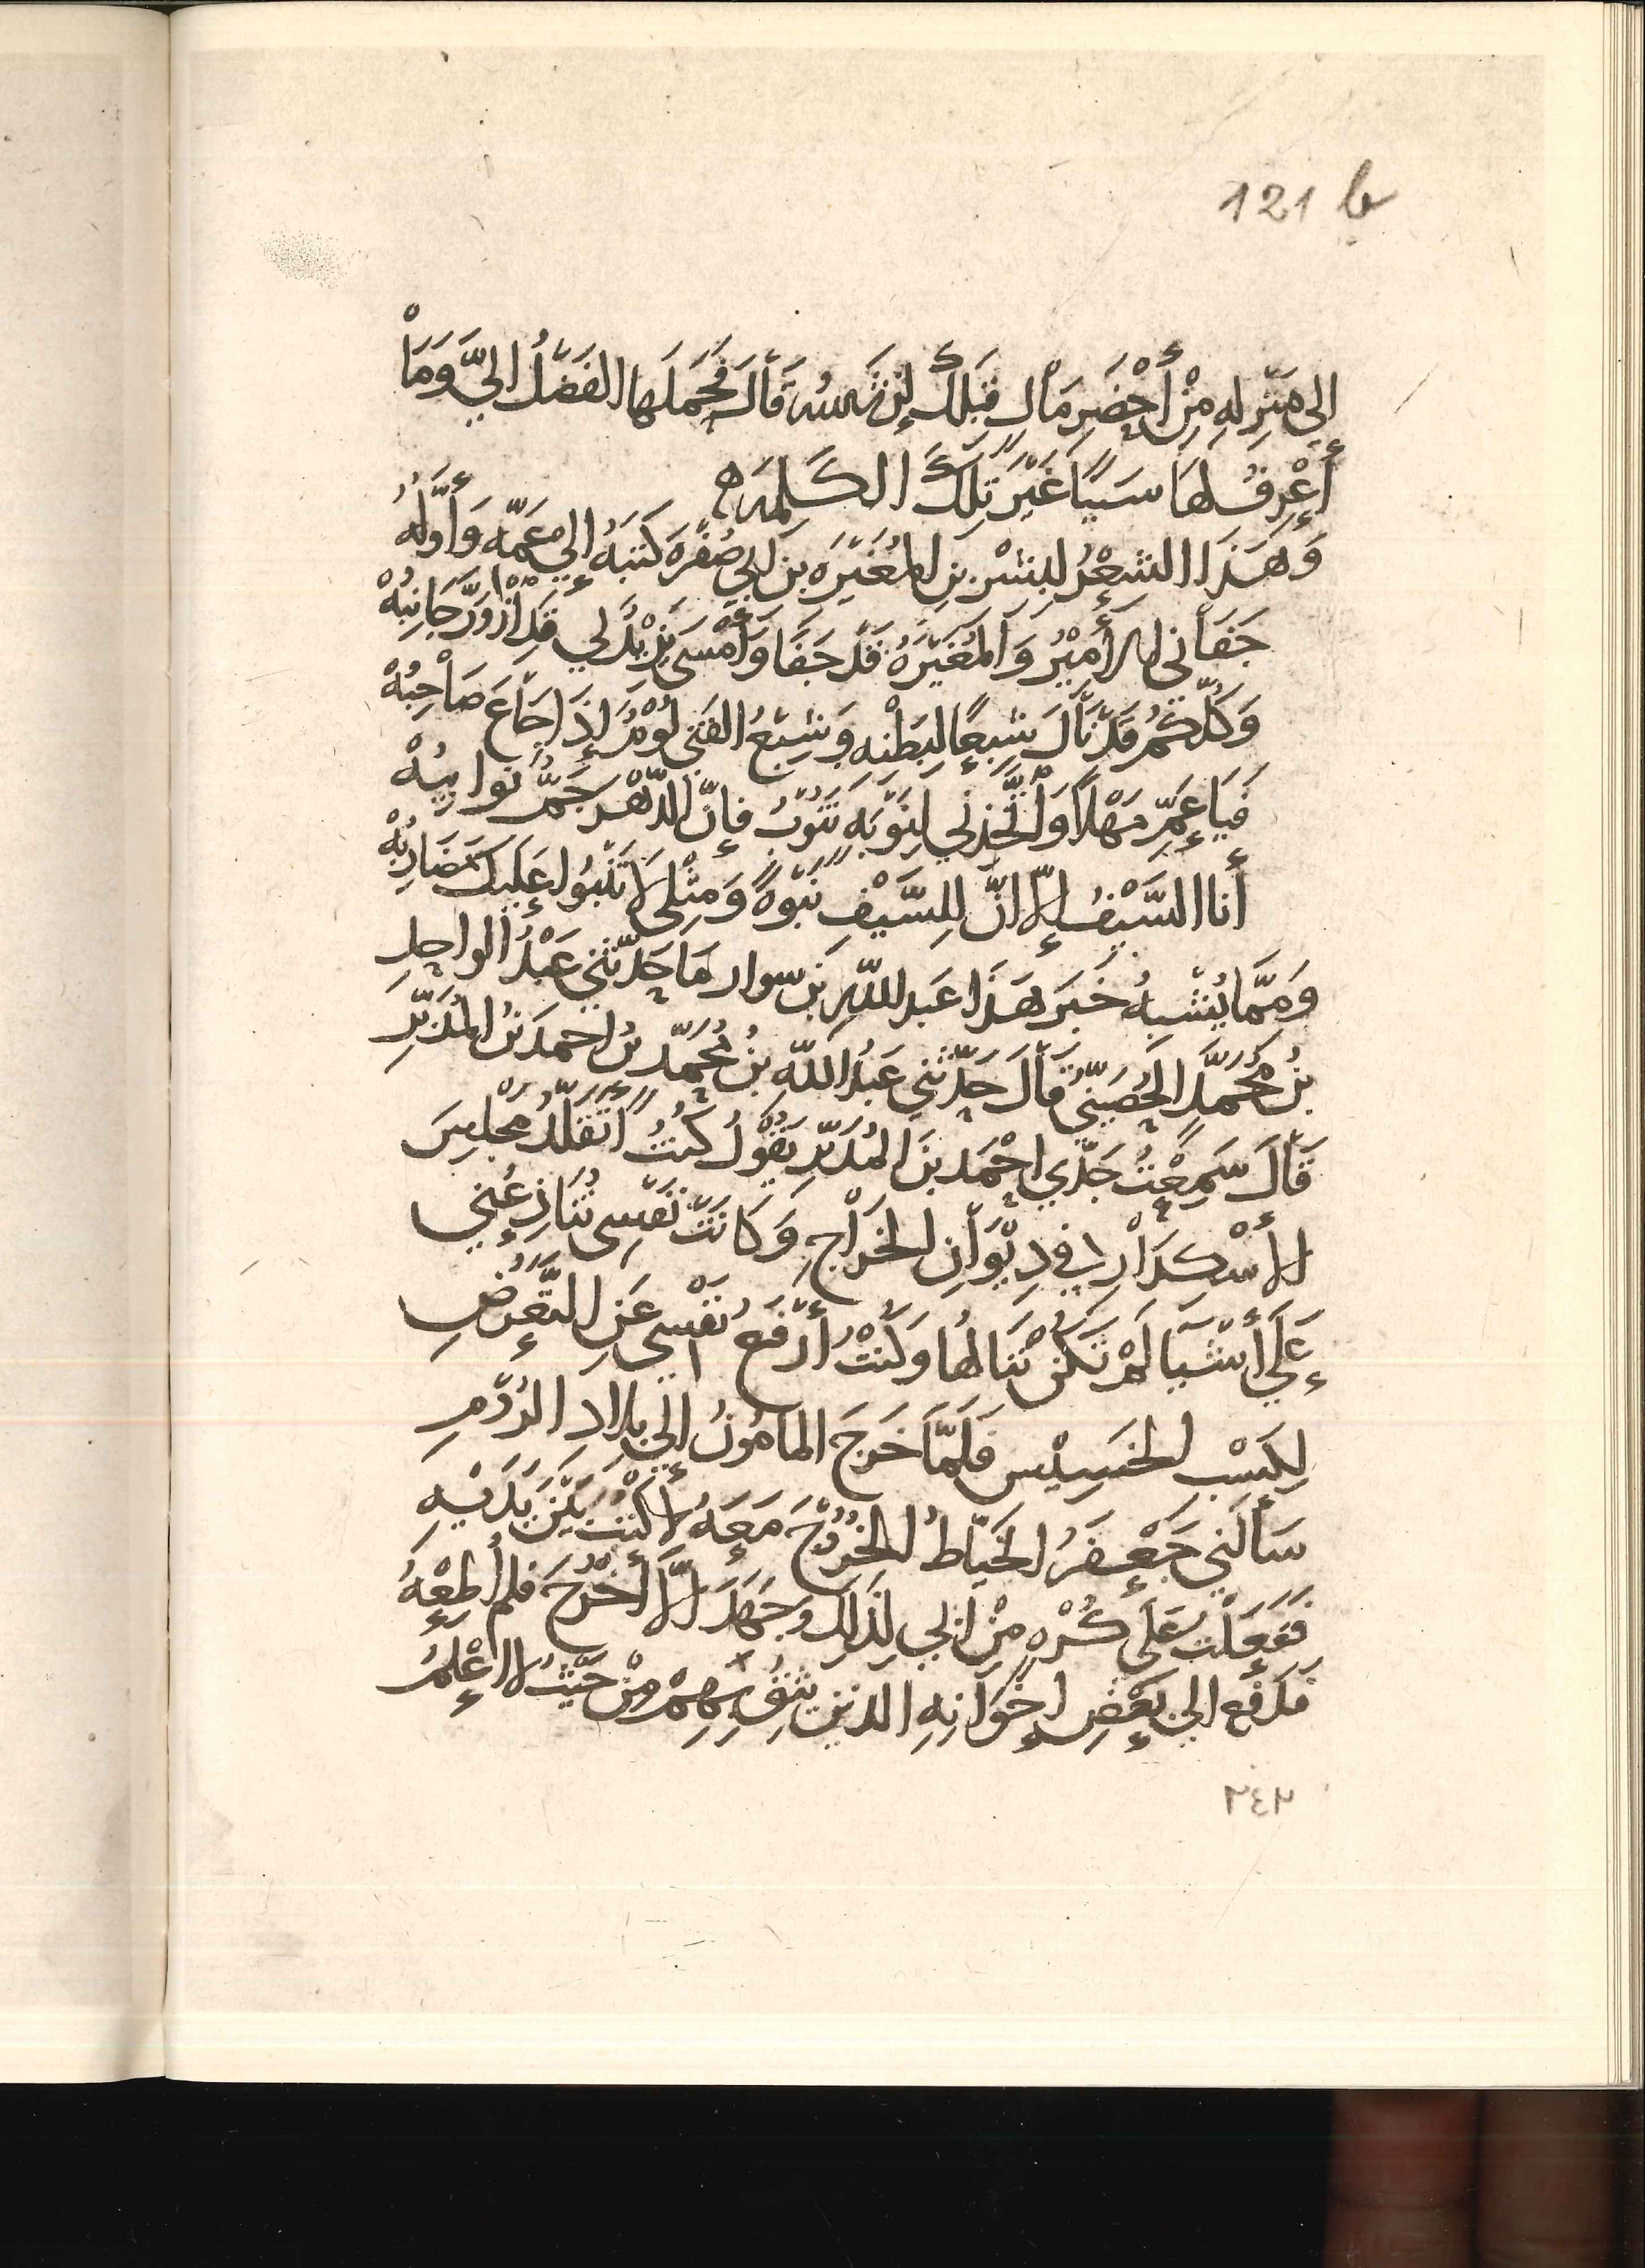 121 b
إلى مَنْزِلهِ مِنْ أَحْضَرِ مَالٍ قِبَلَكَ إِنْ شَاءَ اللهُ قَالَ فَحَمَلَها الفَضْلُ إليَّ وَمَا
أَعْرِفُ لَهَا سَبَبًا غَيْرَ تِلْكَ الكَلِمَةِ ه
وَهَذَا الشِعْرُ لِبِشْرِ بنِ المُغَيْرَةِ بنِ أبي صُفْرَة كَتَبَهُ إلى عَمّهِ وَأَوَّلُهُ
جَفَانِي الأَمِيْرُ وَالمُغَيْرَةُ قَدْ جَفَا وَأَمْسَى يَزِيْدُ لي قَدِ ازْوَرَّ جَانِبُهْ
وَكُلّكُمُ قَدْ نَالَ شِبعًا لِبَطْنِهِ وَشِبْعُ الفَتى لُؤمٌ إِذَا جَاعَ صَاحِبُهْ
فَيَا عَمِّ مَهْلًا وَاتَّخِذْنِي لِنَوْبَةٍ تَنُوْبُ فإنّ الدّهْرَ جَمٌّ نوايبُهْ
أنا السَّيْفُ إلّا انّ لِلسَّيْفِ نَبْوَةً وَمِثْلي لا تَنْبُوا عَلَيْكَ مَضَارِبُهْ
وَمِمَّا يُشْبِهُ خَبَرَ هَذَا عَبد اللّهِ بن سوار مَا حَدّثَنِي عَبْدُ الواحِدِ
بنُ مُحَمَّدٍ الحُصَينيّ قَالَ حَدّثَنِي عَبْدُ اللّه بنُ مُحَمّد بن احمدَ بنُ المُدَبِّرِ
قَالَ سَمِعْتُ جَدّي احْمَد بنَ المُدَبّرِ يَقُوْلُ كُنْتُ أَتَقَلّدُ مَجْلِسَ
الأَسْكَدَارِ في دِيْوَانِ الخَرَاجِ وَكَانَتْ نَفْسِي تُنَازِعُنِي
عَلَى أَشْيَا لَمْ تَكُنْ تَنَالُهَا وَكُنْتُ أَرْفَعُ نَفْسِي عَنِ التَّعَرُّضِ
لِكَسْبِ الخَسِيْسِ فَلَمَّا خَرَجَ المامُونُ إلى بِلادِ الرُوْمِ
سَأَلَنِي جَعْفَرُ الخَيّاطُ الخُرُوْجَ مَعَهُ لأَكْتُبَ بَيْنَ يَدَيْهِ
فَفَعَلْتُ عَلَى كُرْهٍ مِنْ ابي لِذَلِكَ وجَهَدَ ألَّا أَخْرُجَ فلم أُطِعْهُ
فَدَفَع الى بَعْضِ إِخْوَانِهِ الذين يَثِقُ بِهِمْ مِنْ حَيْثُ لا اعْلمُ
٢٤٢